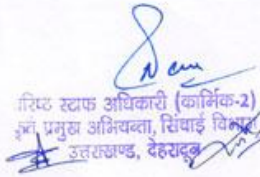 रिष्ठ स्टाफ अधिकारी (कार्मिक-2)
प्रमुख अभियन्ता, सिंचाई विभाग
उत्तराखण्ड, देहरादून